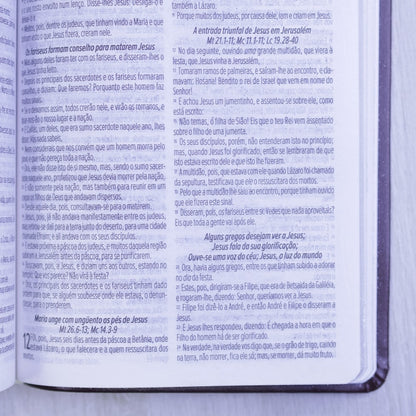 envolto num lenço. Disse-lhes Jesus: Desligai-o e
Muitos, pois, dentre os judeus, que tinham vindo a Maria e que
que Jesus fizera, creram nele.
Os fariseus formam conselho para matarem Jesus
Mas alguns deles foram ter com os fariseus, e disseram-lhes o
que Jesus tinha feito.
Depois os principais dos sacerdotes e os fariseus formaram
conselho, e diziam: Que faremos? Porquanto este homem faz
muitos sinais.
Se o deixamos assim, todos crerão nele, e virão os romanos, e
o nosso lugar e a nação.
E Caifás, um deles, que era sumo sacerdote naquele ano, lhes
disse: Vós nada sabeis,
Nem considerais que nos convém que um homem morra pelo
povo, e que não pereça toda a nação.
Ora, ele não disse isto de si mesmo, mas, sendo o sumo sacer-
naquele ano, profetizou que Jesus devia morrer pela nação.
E não somente pela nação, mas também para reunir em um
corpo os filhos de Deus que andavam dispersos.
Desde aquele dia, pois, consultavam-se para o matarem.
Jesus, pois, já não andava manifestamente entre os judeus,
mas retirou-se dali para a terra junto do deserto, para uma cidade
chamada Efraim; e ali andava com os seus discípulos.
E estava próxima a páscoa dos judeus, e muitos daquela região
subiram a Jerusalém antes da páscoa, para se purificarem.
Buscavam, pois, a Jesus, e diziam uns aos outros, estando no
templo: Que vos parece? Não virá à festa?
Ora, os principais dos sacerdotes e os fariseus tinham dado
ordem para que, se alguém soubesse onde ele estava, o denun-
para o prenderem.
Maria unge com ungüento os pés de Jesus
Mt 26.6-13; Mc 14.3-9
12 FOI, pois, Jesus seis dias antes da páscoa a Betânia, onde
estava Lázaro, o que falecera e a quem ressuscitara dos
mortos.
também a Lázaro.
11 Porque muitos dos judeus, por causa dele, iam e criam em Jesus.
A entrada triunfal de Jesus em Jerusalém
Mt 21.1-11; Mc 11.1-11; Lc 19.28-40
12 No dia seguinte, ouvindo uma grande multidão, que viera à
festa, que Jesus vinha a Jerusalém,
13 Tomaram ramos de palmeiras, e saíram-lhe ao encontro, e cla-
mavam: Hosana! Bendito o rei de Israel que vem em nome do
Senhor!
14 E achou Jesus um jumentinho, e assentou-se sobre ele, como
está escrito:
15 Não temas, ó filha de Sião! Eis que o teu Rei vem assentado
sobre o filho de uma jumenta.
16 Os seus discípulos, porém, não entenderam isto no princípio;
mas, quando Jesus foi glorificado, então se lembraram de que
isto estava escrito dele e que isto lhe fizeram.
17 A multidão, pois, que estava com ele quando Lázaro foi chamado
da sepultura, testificava que ele o ressuscitara dos mortos.
18 Pelo que a multidão lhe saiu ao encontro, porque tinham ouvido
que ele fizera este sinal.
19 Disseram, pois, os fariseus entre si: Vedes que nada aproveitais?
Eis que toda a gente vai após ele.
Alguns gregos desejam ver a Jesus;
Jesus fala da sua glorificação;
Ouve-se uma voz do céu; Jesus, a luz do mundo
20 Ora, havia alguns gregos, entre os que tinham subido a adorar
no dia da festa.
21 Estes, pois, dirigiram-se a Filipe, que era de Betsaida da Galiléia,
e rogaram-lhe, dizendo: Senhor, queríamos ver a Jesus.
22 Filipe foi dizê-lo a André, e então André e Filipe o disseram a
Jesus.
23 E Jesus lhes respondeu, dizendo: É chegada a hora em que o
Filho do homem há de ser glorificado.
24 Na verdade, na verdade vos digo que, se o grão de trigo, caindo
na terra, não morrer, fica ele só; mas, se morrer, dá muito fruto.